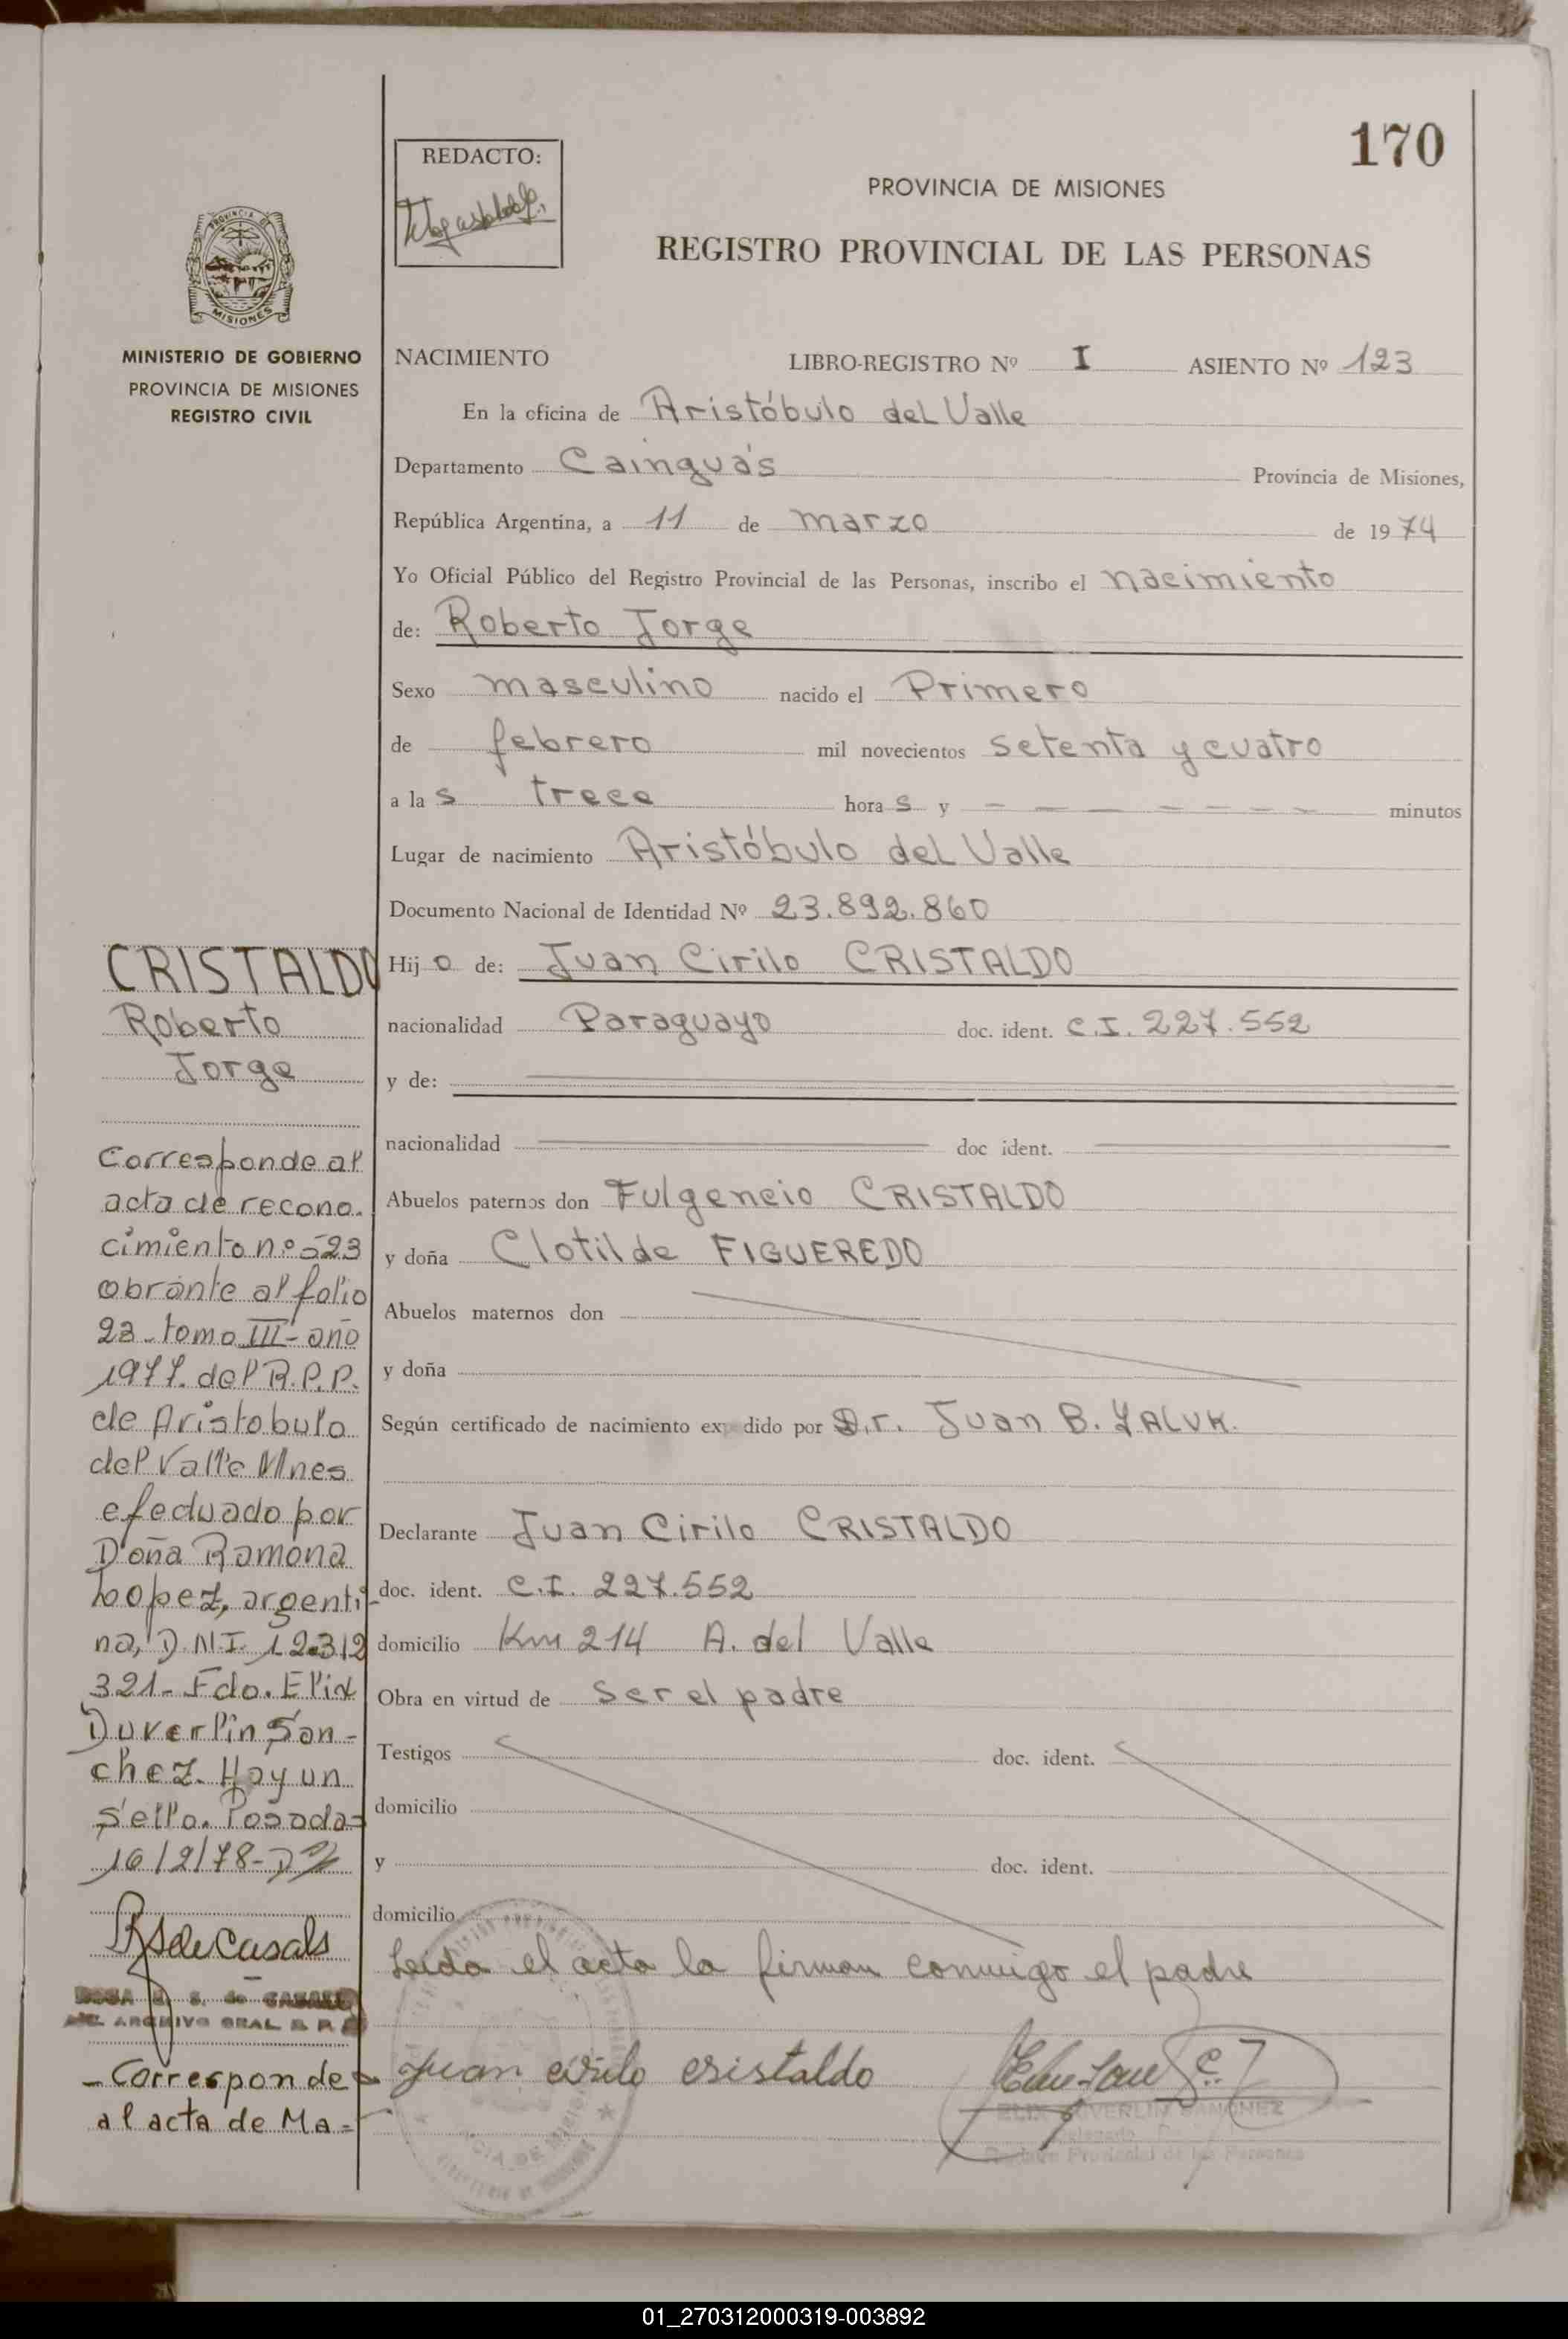 170
REDACTO:
PROVINCIA DE MISIONES
REGISTRO PROVINCIAL DE LAS PERSONAS
PROVINCIA DE
MISIONES
MINISTERIO DE GOBIERNO
PROVINCIA DE MISIONES
REGISTRO CIVIL
NACIMIENTO LIBRO-REGISTRO Nº I ASIENTO Nº 123
En la oficina de Aristóbulo del Valle
Departamento Cainguás Provincia de Misiones,
República Argentina, a 11 de marzo de 1974
Yo Oficial Público del Registro Provincial de las Personas, inscribo el nacimiento
de: Roberto Jorge
Sexo masculino nacido el Primero
de febrero mil novecientos setenta y cuatro
a la s trece hora s y — — — — — — — minutos
Lugar de nacimiento Aristóbulo del Valle
Documento Nacional de Identidad Nº 23.892.860
Hij o de: Juan Cirilo CRISTALDO
nacionalidad Paraguayo doc. ident. C.I. 227.552
y de:
nacionalidad doc ident.
Abuelos paternos don Fulgencio CRISTALDO
y doña Clotilde FIGUEREDO
Abuelos maternos don
y doña
Según certificado de nacimiento expedido por Dr. Juan B. YALUK.
Declarante Juan Cirilo CRISTALDO
doc. ident. C.I. 227.552
domicilio Km 214 A. del Valle
Obra en virtud de ser el padre
Testigos doc. ident.
domicilio
y doc. ident.
domicilio
Leida el acta la firman conmigo el padre
Juan cirilo cristaldo
ELIX DUVERLIN SANCHEZ
Delegado
Registro Provincial de las Personas
CRISTALDO
Roberto
Jorge
Corresponde al
acta de recono.
cimiento nº 523
obrante al folio
23 - tomo III - año
1977. del R.P.P.
de Aristobulo
del Valle Mnes
efectuado por
Doña Ramona
Lopez, argenti-
na, D.N.I. 12.312
321 - Fdo. Elix
Duverlin San-
chez. Hay un
sello. Posadas
16/2/78 -
RSdeCasals
ROSA S. de CASALS
ARCHIVO GRAL. R. P. P.
- Corresponde
al acta de Ma =
01_270312000319-003892